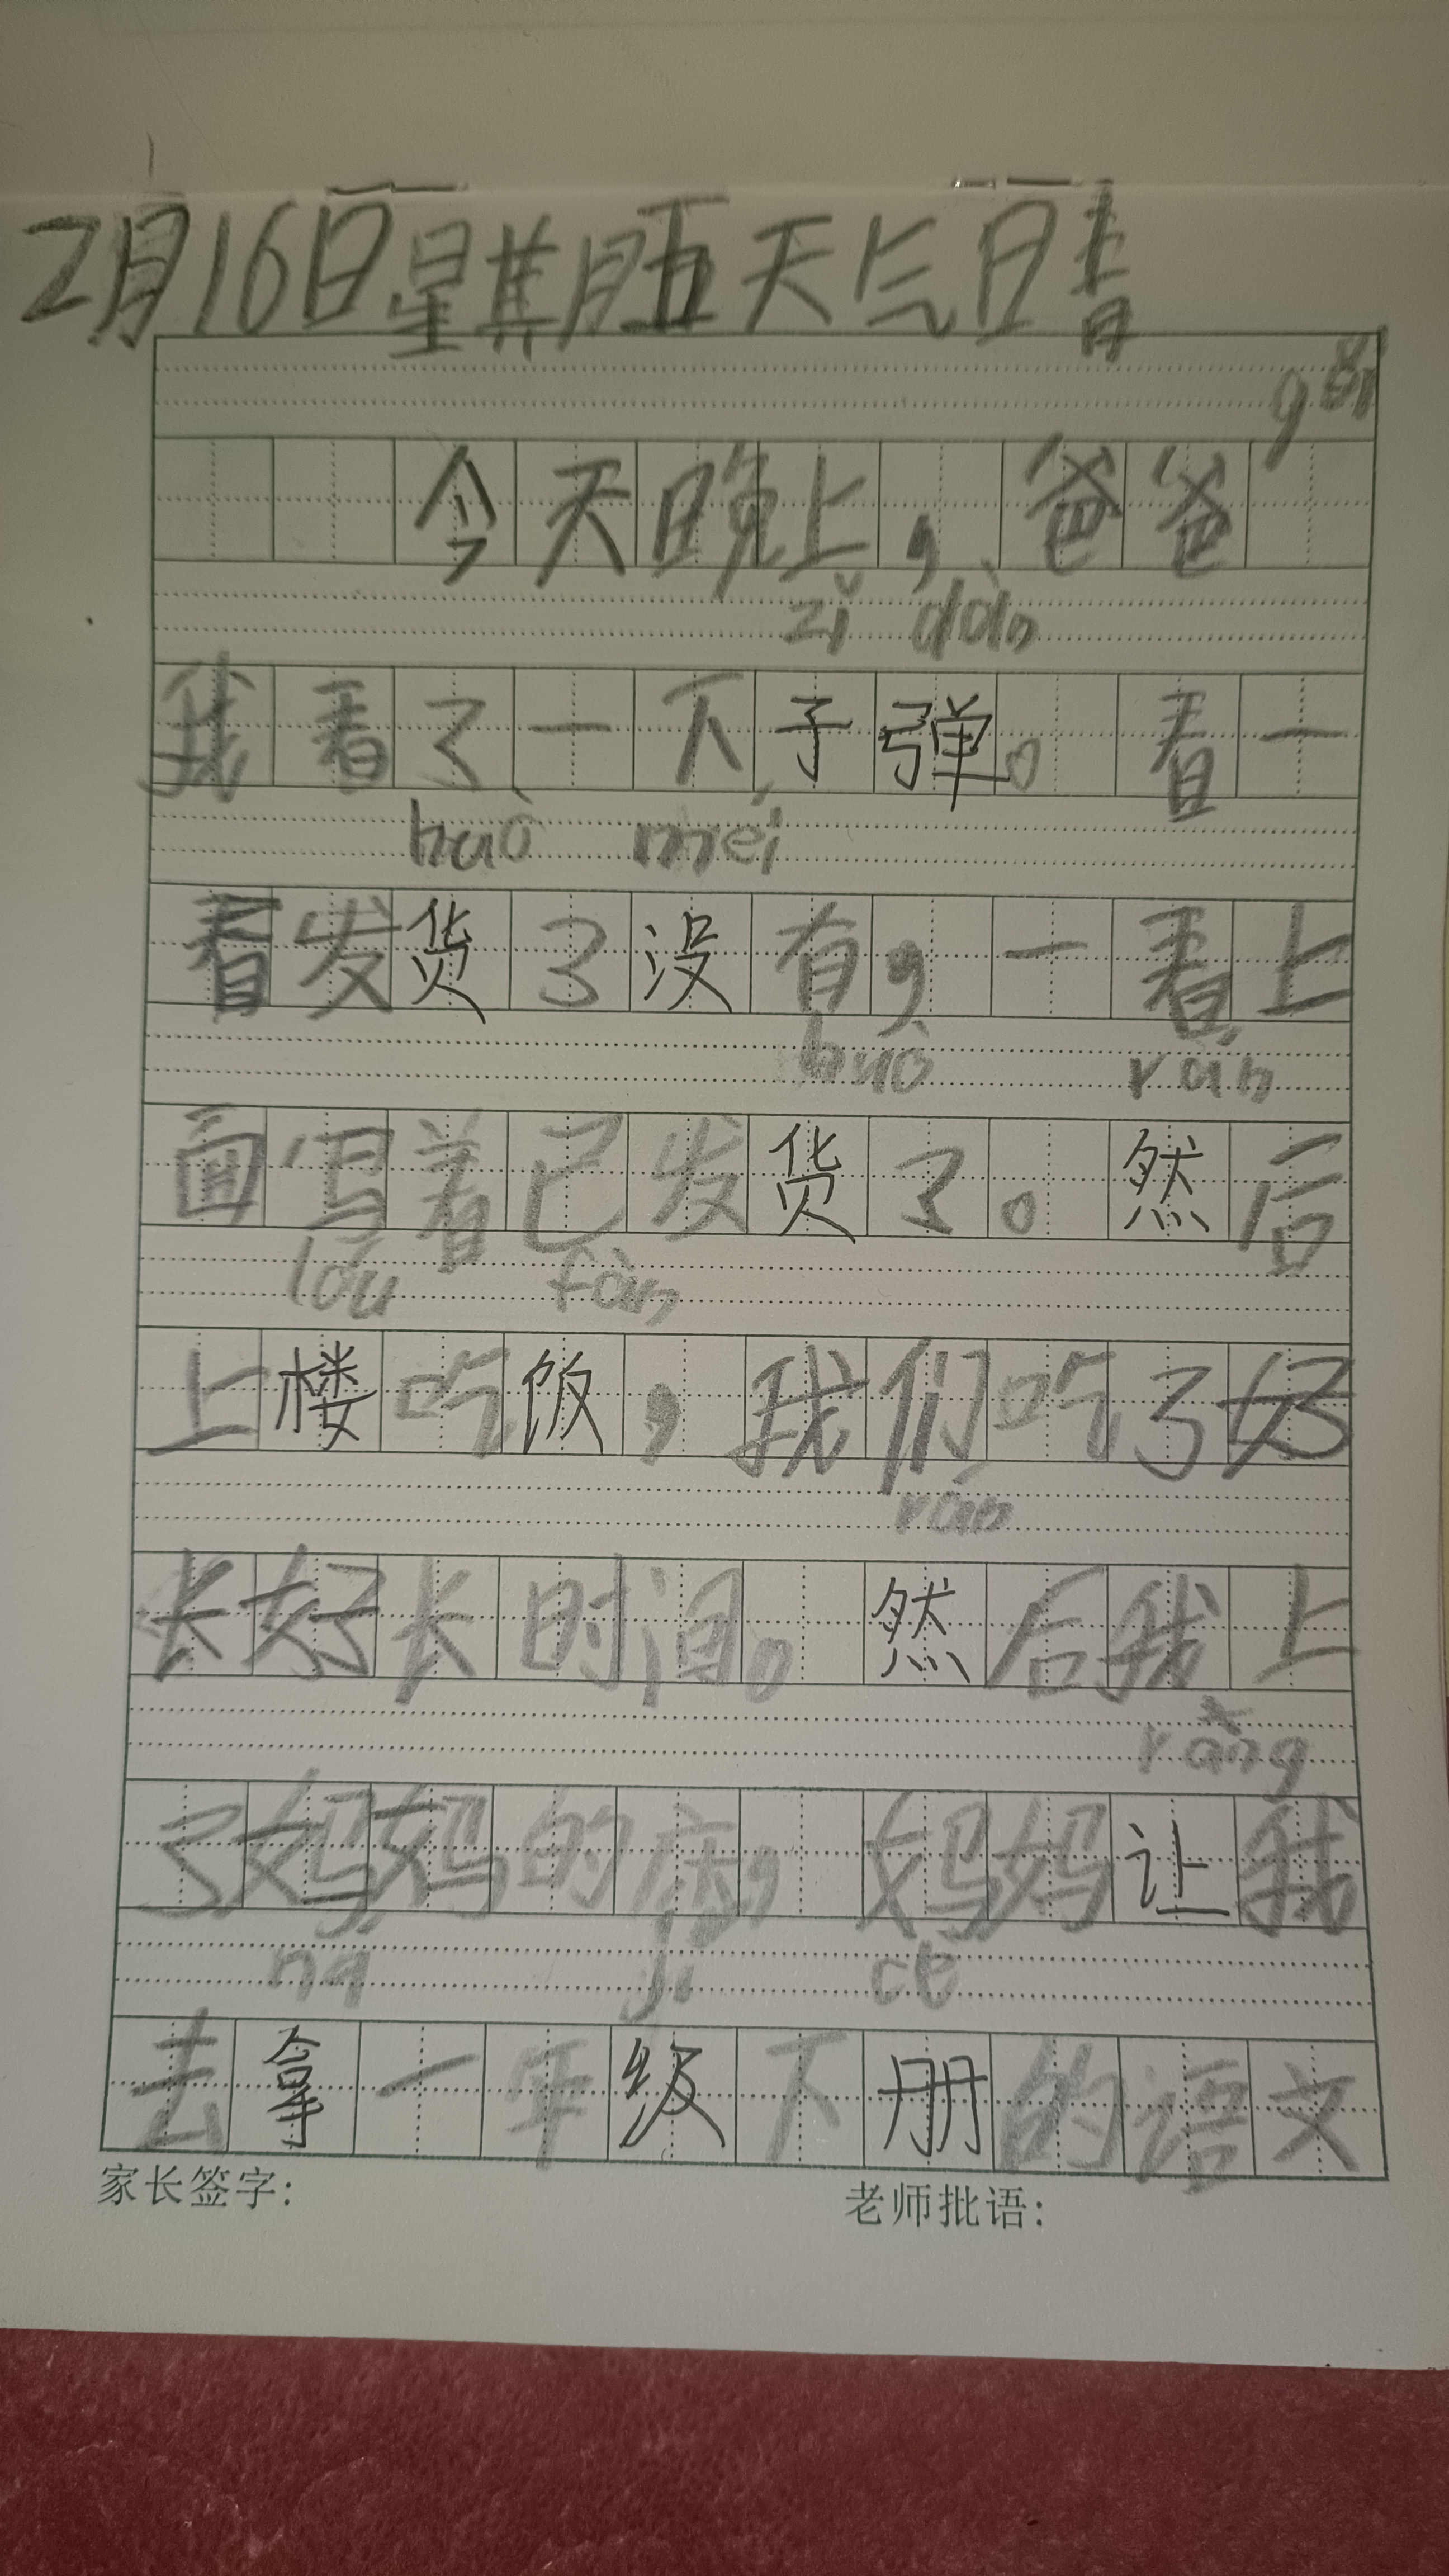 2月16日星期五天气日晴
gěi
今天晚上，爸爸
zǐ dàn
我看了一下子弹。看一
huò méi
看发货了没有，一看上
huò rán
面写着已发货了。然后
lóu fàn
上楼吃饭，我们吃了好
rán
长好长时间。然后我上
ràng
了妈妈的床，妈妈让我
ná jí cè
去拿一年级下册的语文
家长签字： 老师批语：